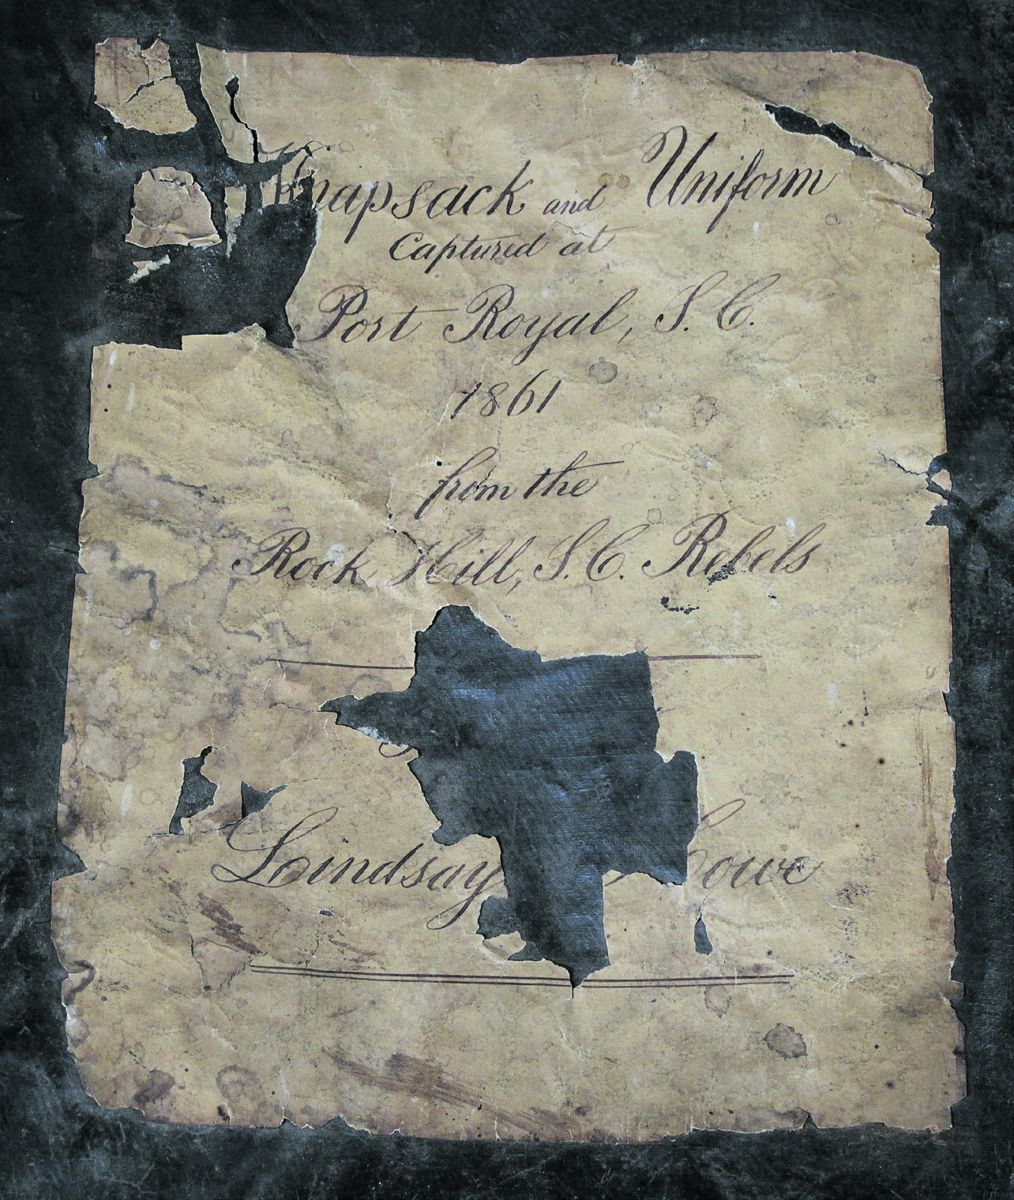 Knapsack and Uniform
Captured at
Port Royal, S. C.
1861
from the
Rock Hill, S. C. Rebels
Lindsay